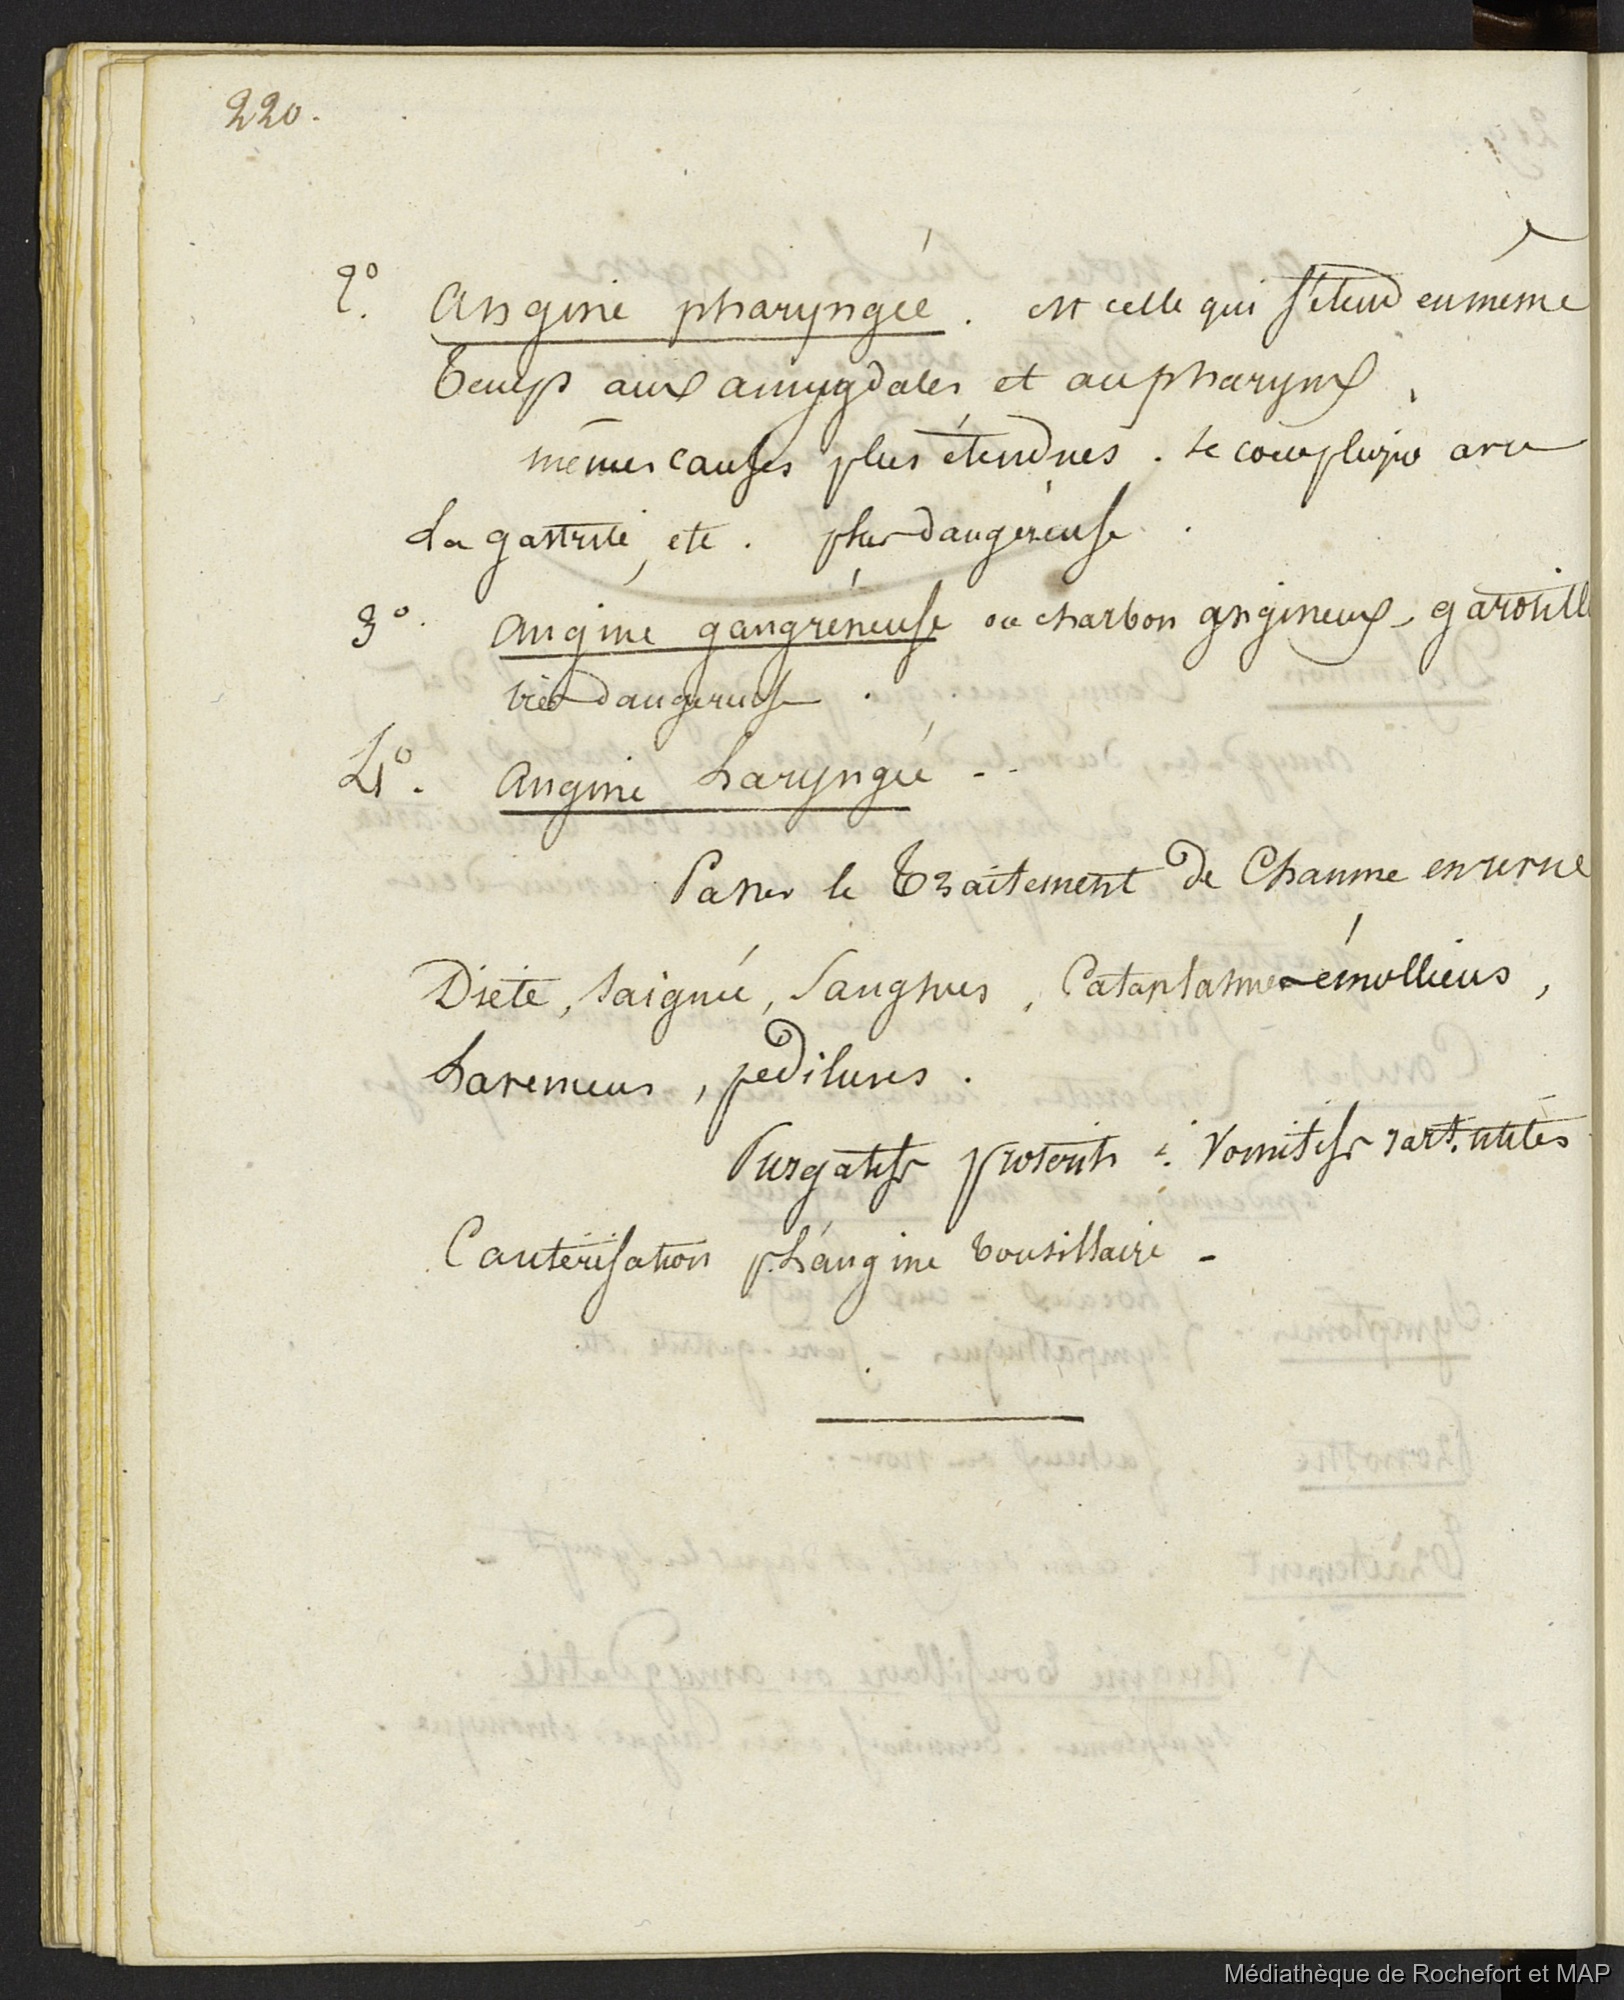 220.
2°. Angine pharyngée. est celle qui s'étend en même
temps aux amygdales et au pharynx,
mêmes causes plus étendues. se complique avec
la gastrite, etc. plus dangéreuse.
3°. Angine gangréneuse ou charbon angineux, garotille
très dangereuse.
4°. Angine Laryngée - -
Passer le Traitement de Chaume
Diète, saignée, sangsues, Cataplasmes émolliens,
Lavemens, pédiluves.
Purgatifs Vomitifs utiles
Cautérisation p. L'angine tonsillaire -
Médiathèque de Rochefort et MAP